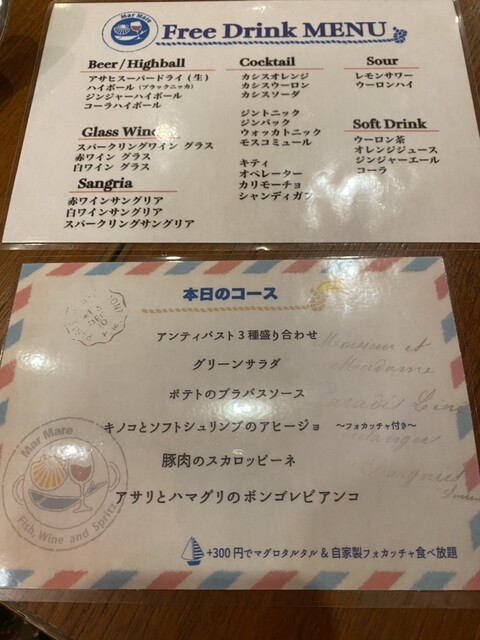 Mar Mare
Free Drink MENU
Beer/Highball
アサヒスーパードライ(生)
ハイボール(ブラックニッカ)
ジンジャーハイボール
コーラハイボール
Glass Wine
スパークリングワイン グラス
赤ワイン グラス
白ワイン グラス
Sangria
赤ワインサングリア
白ワインサングリア
スパークリングサングリア
Cocktail
カシスオレンジ
カシスウーロン
カシスソーダ
ジントニック
ジンバック
ウォッカトニック
モスコミュール
キティ
オペレーター
カリモーチョ
シャンディガフ
Sour
レモンサワー
ウーロンハイ
Soft Drink
ウーロン茶
オレンジジュース
ジンジャーエール
コーラ
本日のコース
アンティパスト3種盛り合わせ
グリーンサラダ
ポテトのブラバスソース
キノコとソフトシュリンプのアヒージョ ~フォカッチャ付き~
豚肉のスカロッピーネ
アサリとハマグリのボンゴレビアンコ
+300円でマグロタルタル&自家製フォカッチャ食べ放題
Mar Mare
Fish, Wine and Spritz
Monsieur et
Madame